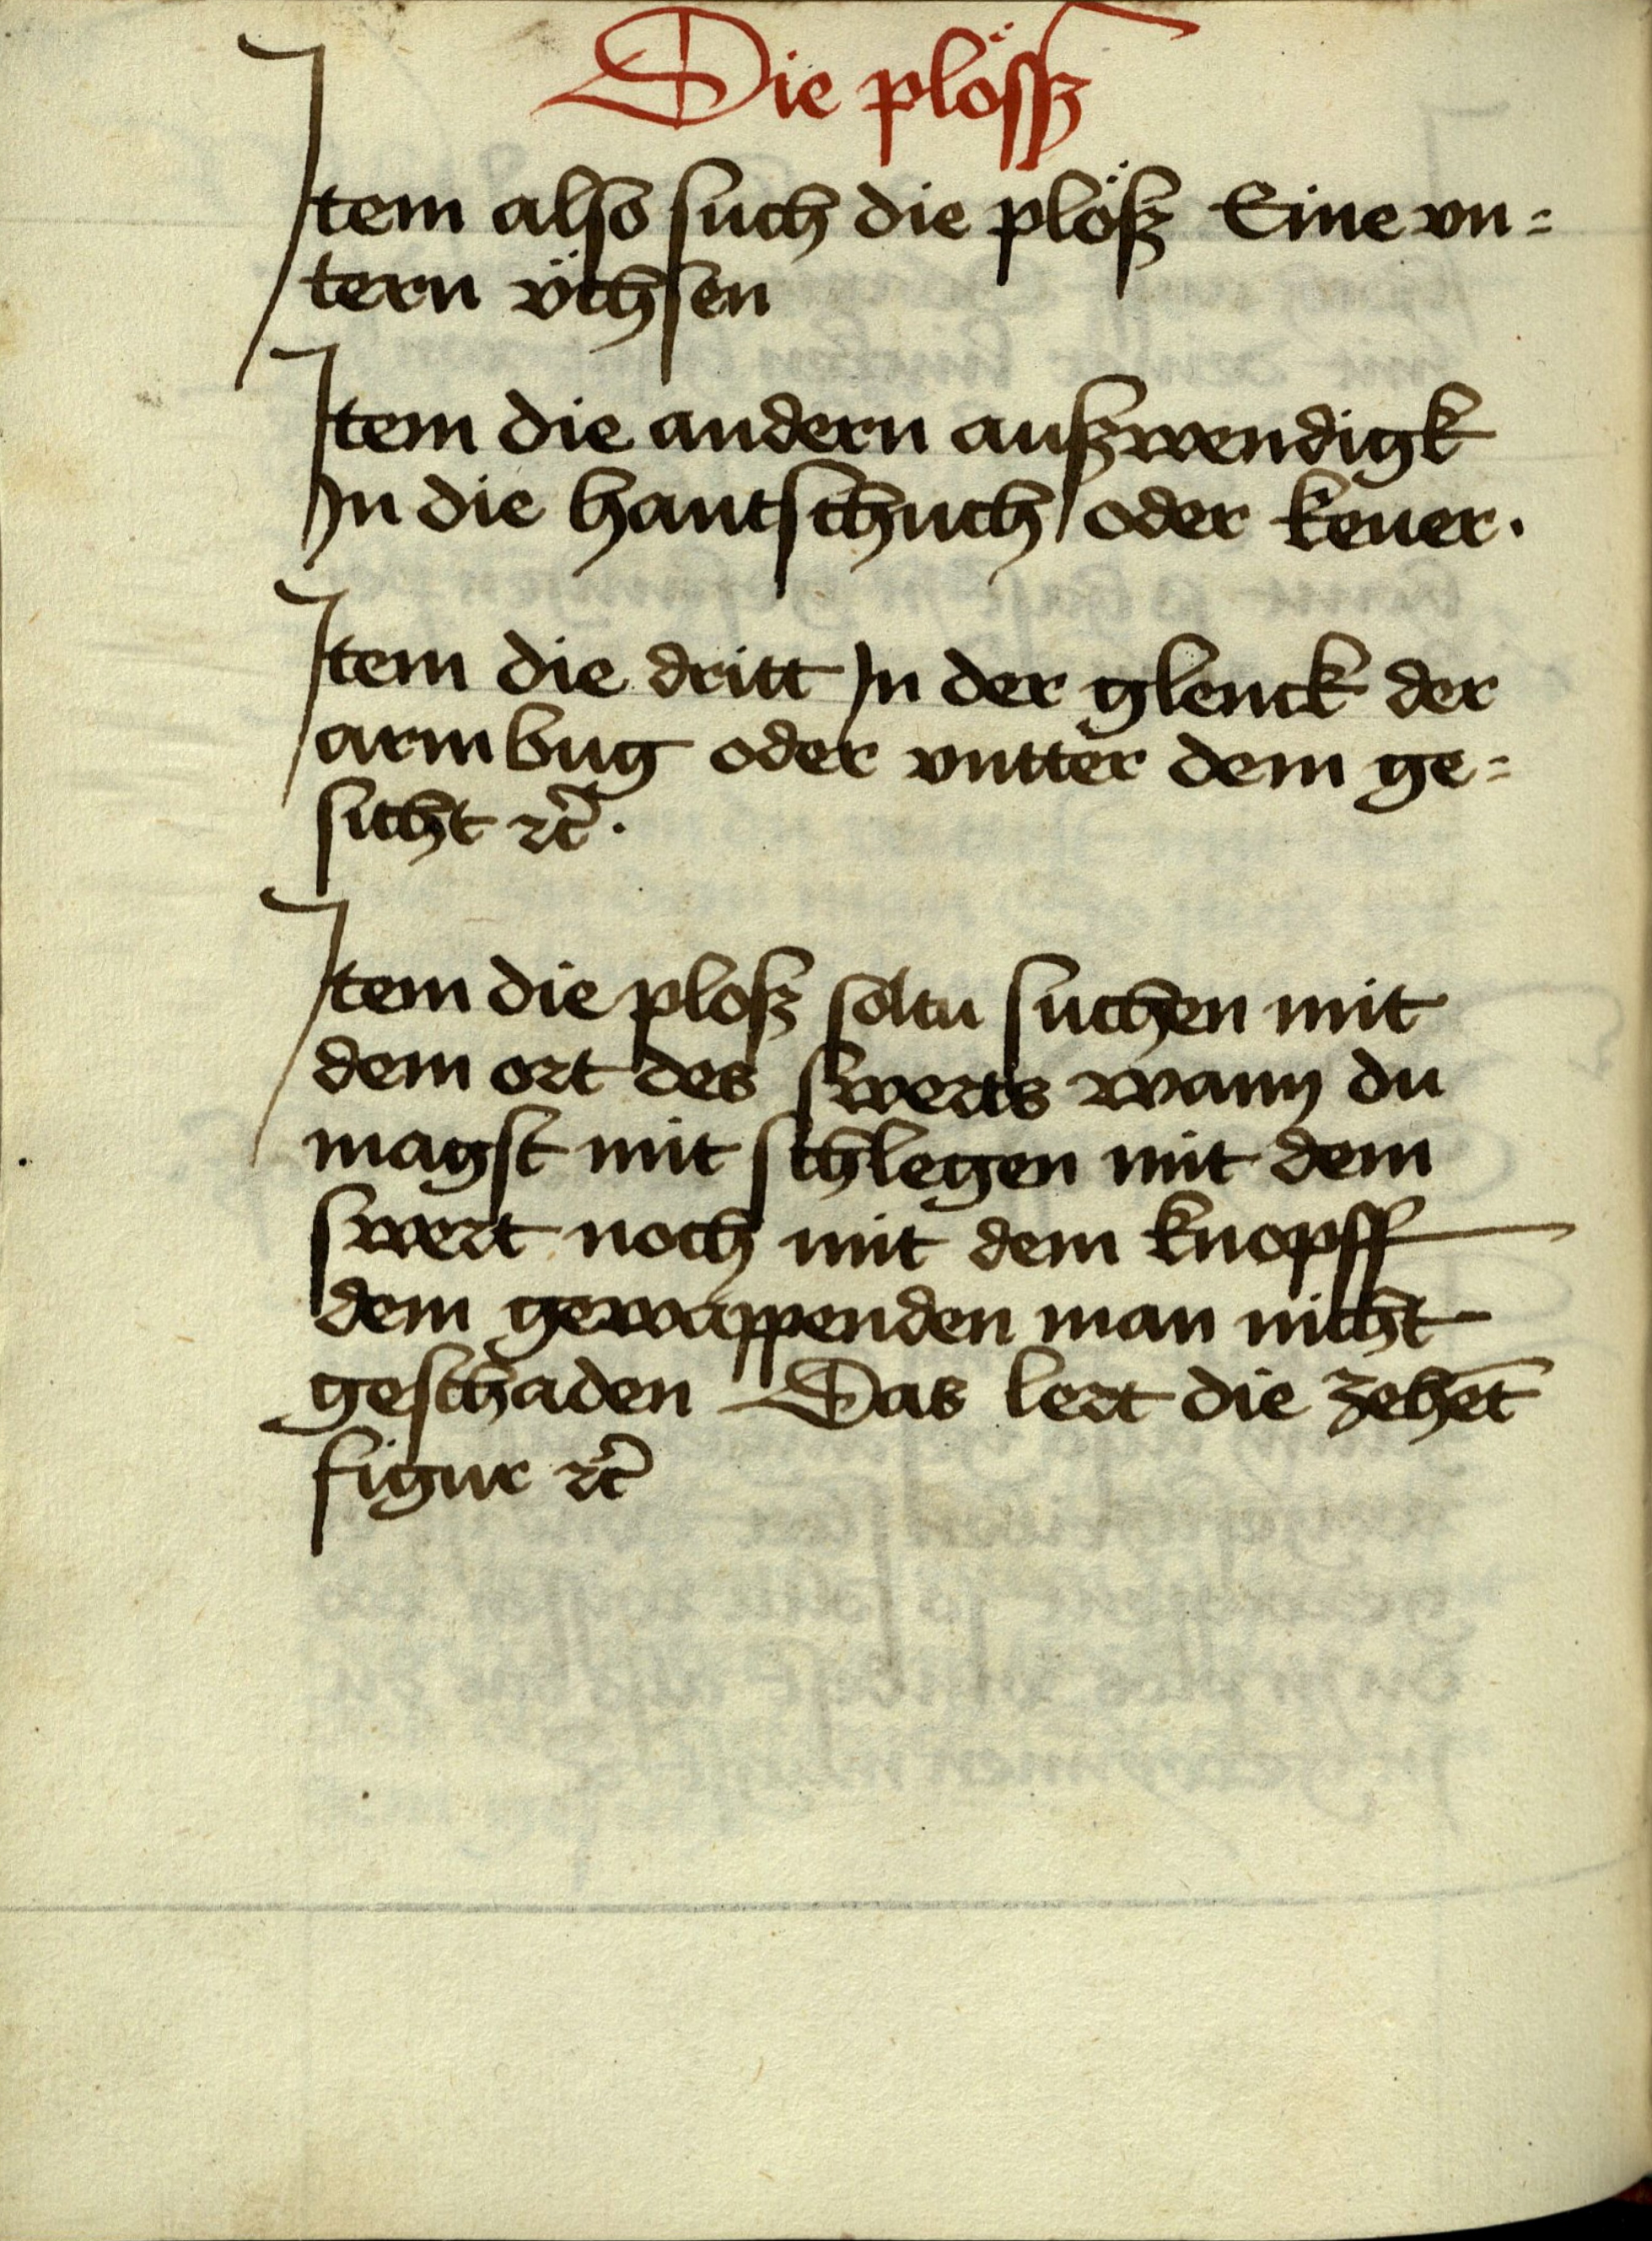 Die plöſſz
Item alſo ſuch die plöſz Eine vn=
tern v̈chſen
Item die andern auſzwendigk
In die hantſchuch oder keuer.
Item die dritt In der glenck der
arm bug oder vntter dem ge=
ſicht ⁊c̃.
Item die ploſz ſoltu ſuchen mit
dem ort des ſwerts wann du
magſt mit ſchlegen mit dem
ſwert noch mit dem knopff
dem gewappenden man nicht
geſchaden Das lert die zehet̄
figur ⁊c̃